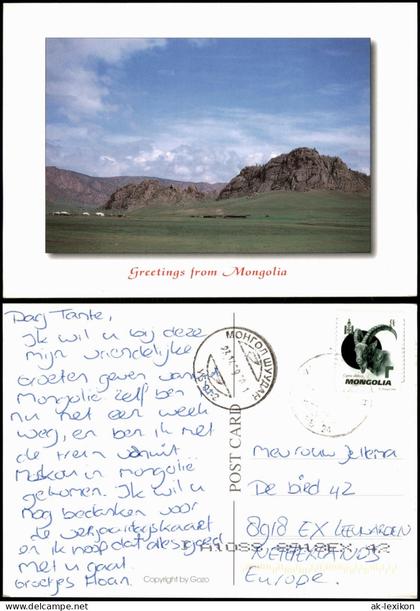 Greetings from Mongolia
Dag Tante,
Ik wil u bij deze
mijn vriendelijke
groeten geven vanuit
Mongolië zelf ben ik
nu net een week
weg, en ben ik met
de trein vanuit
Moskou in Mongolie
gekomen. Ik wil u
nog bedanken voor
de verjaardagskaart
en ik hoop dat alles goed
met u gaat.
Groetjes
Copyright by Gozo
POST CARD
МОНГОЛ ШУУДАН
MONGOLIA
Mevrouw Jellema
De bird 42
8918 EX LEEUWARDEN
NETHERLANDS
Europe.
8918EX 42
© ak-lexikon
ak-lexikon.com